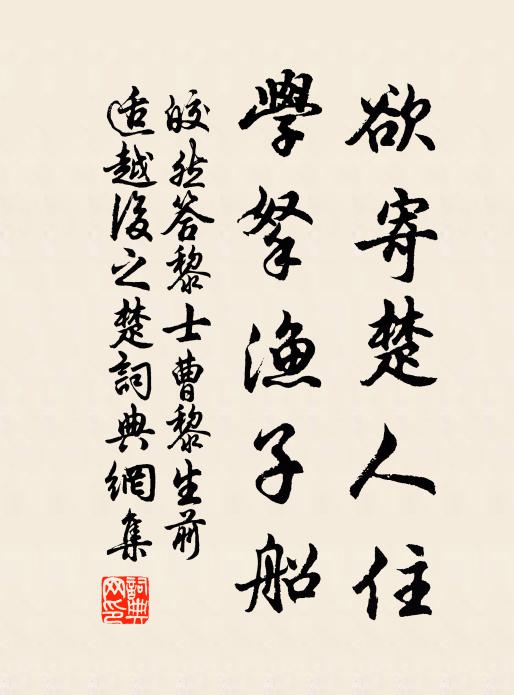 欲寄楚人住
學拏漁子船
皎然答黎士曹黎生前
適越後之楚詞典網集
詞典网印